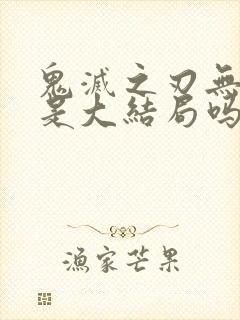 鬼滅之刃無
是大結局嗎
漁家芒果